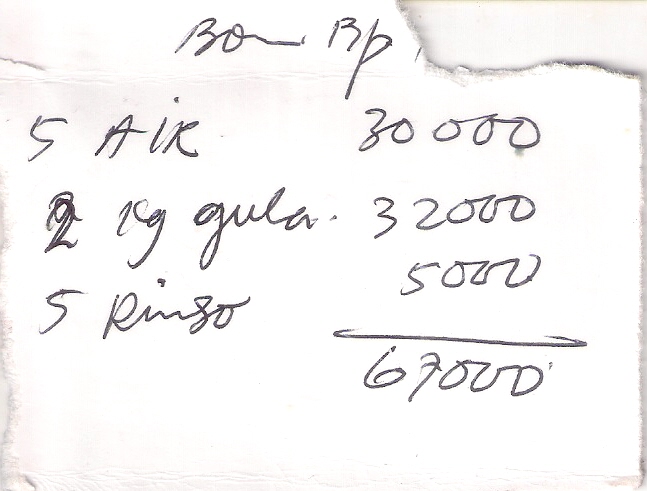 Bon Rp
5 AIR 30000
2 kg gula. 32000
5 Rinso 5000
67000